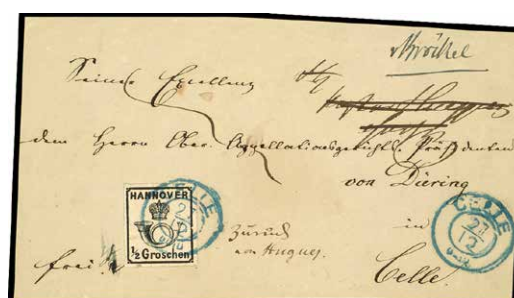 Seiner Excellenz
dem Herrn Ober-Appellationsgerichts-Präsidenten
von Düring
in
Celle.
HANNOVER
½ Groschen
CELLE
CELLE
27
12
zurück
von Hugues.
frei